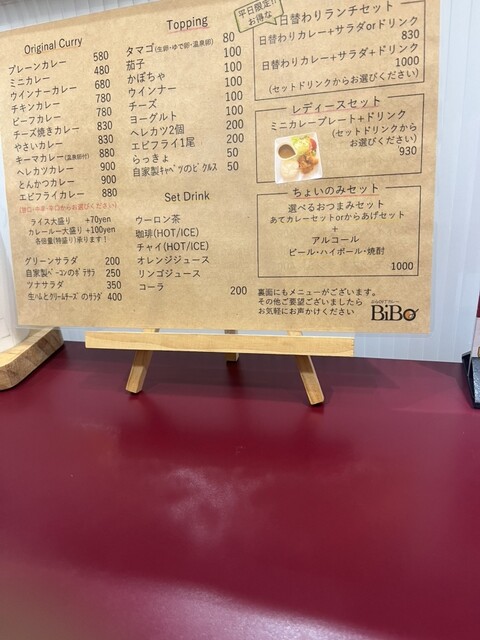 Original Curry
プレーンカレー 580
ミニカレー 480
ウインナーカレー 680
チキンカレー 780
ビーフカレー 780
チーズ焼きカレー 830
やさいカレー 830
キーマカレー(温泉卵付) 880
ヘレカツカレー 900
とんかつカレー 900
エビフライカレー 880
(甘口・中辛・辛口からお選びください)
ライス大盛り +70yen
カレールー大盛り +100yen
各倍量(特盛り)承ります!
グリーンサラダ 200
自家製ベーコンのポテサラ 250
ツナサラダ 350
生ハムとクリームチーズのサラダ 400
Topping
タマゴ(生卵・ゆで卵・温泉卵) 80
茄子 100
かぼちゃ 100
ウインナー 100
チーズ 100
ヨーグルト 100
ヘレカツ2個 200
エビフライ1尾 200
らっきょ 50
自家製キャベツのピクルス 50
Set Drink
ウーロン茶
珈琲(HOT/ICE)
チャイ(HOT/ICE)
オレンジジュース
リンゴジュース
コーラ 200
平日限定!!
お得な
日替わりランチセット
日替わりカレー+サラダorドリンク
830
日替わりカレー+サラダ+ドリンク
1000
(セットドリンクからお選びください)
レディースセット
ミニカレープレート+ドリンク
(セットドリンクから
お選びください)
930
ちょいのみセット
選べるおつまみセット
あてカレーセットorからあげセット
+
アルコール
ビール・ハイボール・焼酎
1000
裏面にもメニューがございます。
その他ご要望ございましたら
お気軽にお声かけください
BiBo